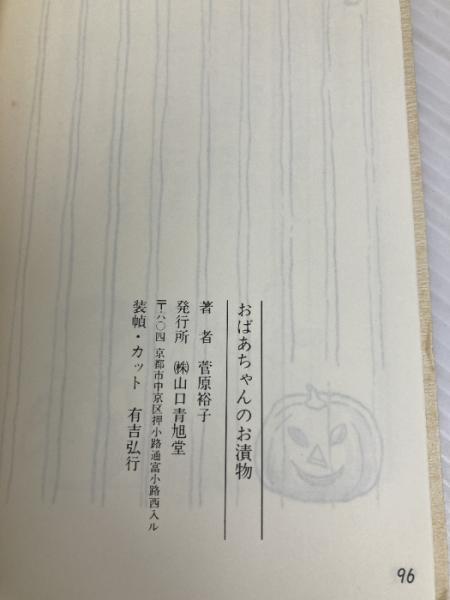 おばあちゃんのお漬物
著者 菅原裕子
発行所 ㈱山口青旭堂
〒六〇四 京都市中京区押小路通富小路西入ル
装幀・カット 有吉弘行
96